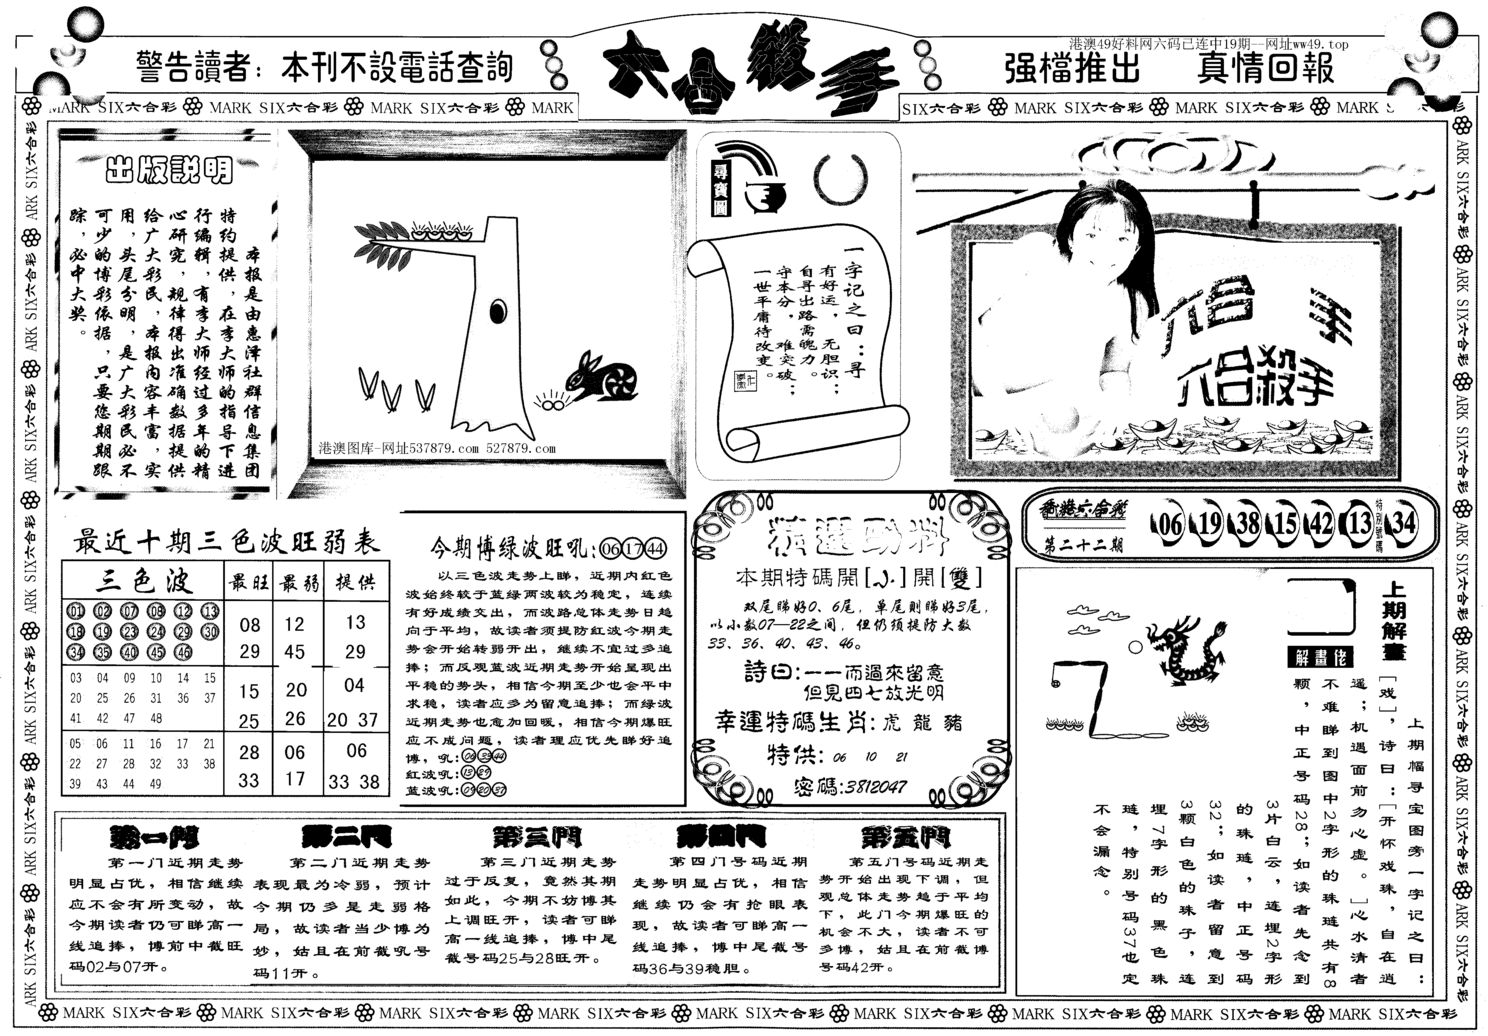 港澳49好料网六码已连中19期--网址ww49.top
警告讀者：本刊不設電話查詢
六合殺手
强檔推出 真情回報
MARK SIX六合彩 MARK SIX六合彩 MARK SIX六合彩 MARK
SIX六合彩 MARK SIX六合彩 MARK SIX六合彩 MARK S
出版説明
本报是由惠泽社群信息集团
特约提供，在李大师的指导下进
行编辑，有李大师经过多年的精
心研究，规律得出准确数据提供
给广大彩民，本报内容丰富，实
用，头尾分明，是广大彩民必不
可少的博彩依据，只要您期期跟
踪，必中大奖。
港澳图库-网址537879.com 527879.com
尋寶圖
一字记之曰：寻
有好运，无胆识；
自寻出路需魄力。
守本分，难突破；
一世平庸待改变。
六合 手
六合殺手
香港六合彩
第二十二期
06 19 38 15 42 13
特別號碼
34
最近十期三色波旺弱表
三色波 最旺 最弱 提供
01 02 07 08 12 13
18 19 23 24 29 30
34 35 40 45 46
08 12 13
29 45 29
03 04 09 10 14 15
20 25 26 31 36 37
41 42 47 48
15 20 04
25 26 20 37
05 06 11 16 17 21
22 27 28 32 33 38
39 43 44 49
28 06 06
33 17 33 38
今期博绿波旺吼：06 17 44
以三色波走势上睇，近期内红色
波始终较于蓝绿两波较为稳定，连续
有好成绩交出，而波路总体走势日趋
向于平均，故读者须提防红波今期走
势会开始转弱开出，继续不宜过多追
捧；而反观蓝波近期走势开始呈现出
平稳的势头，相信今期至少也会平中
求稳，读者应多为留意追捧；而绿波
近期走势也愈加回暖，相信今期爆旺
应不成问题，读者理应优先睇好追
博，吼：06 33 44
红波吼：13 29
蓝波吼：09 20 37
精選勁料
本期特碼開[小]開[雙]
双尾睇好0、6尾，单尾则睇好3尾，
以小数07—22之间，但仍须提防大数
33、36、40、43、46。
詩曰：一一而過來留意
但見四七放光明
幸運特碼生肖：虎 龍 豬
特供：06 10 21
密碼：3812047
上期解畫
解畫佬
上期幅寻宝图旁一字记之曰：
[戏]，诗曰：[开怀戏珠，自在逍
遥；机遇面前勿心虚。]心水清者
不难睇到图中2字形的珠琏共有8
颗，中正号码28；如读者先念到
3片白云，连埋2字形
的珠琏，中正号码
32；如读者留意到
3颗白色的珠子，连
埋7字形的黑色珠
琏，特别号码37也定
不会漏念。
第一門
第一门近期走势
明显占优，相信继续
应不会有所变动，故
今期读者仍可睇高一
线追捧，博前中截旺
码02与07开。
第二門
第二门近期走势
表现最为冷弱，预计
今期仍多是走弱格
局，故读者当少博为
妙，姑且在前截吼号
码11开。
第三門
第三门近期走势
过于反复，竟然其期
如此，今期不妨博其
上调旺开，读者可睇
高一线追捧，博中尾
截号码25与28旺开。
第四門
第四门号码近期
走势明显占优，相信
继续仍会有抢眼表
现，故读者可睇高一
线追捧，博中尾截号
码36与39稳胆。
第五門
第五门号码近期走
势开始出现下调，但
观总体走势趋于平均
下，此门今期爆旺的
机会不大，读者不可
多博，姑且在前截博
号码42开。
MARK SIX六合彩 MARK SIX六合彩 MARK SIX六合彩 MARK SIX六合彩 MARK SIX六合彩 MARK SIX六合彩 MARK SIX六合彩 MARK SIX六合彩 MARK SIX六合彩